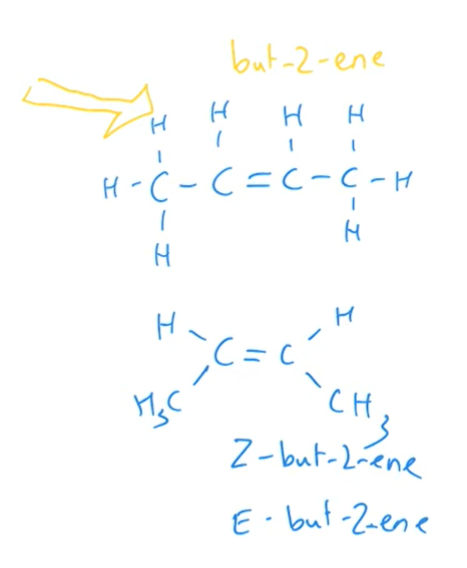 but-2-ene
H H H H
H-C-C=C-C-H
H H
H H
C=C
H3C CH3
Z-but-2-ene
E-but-2-ene